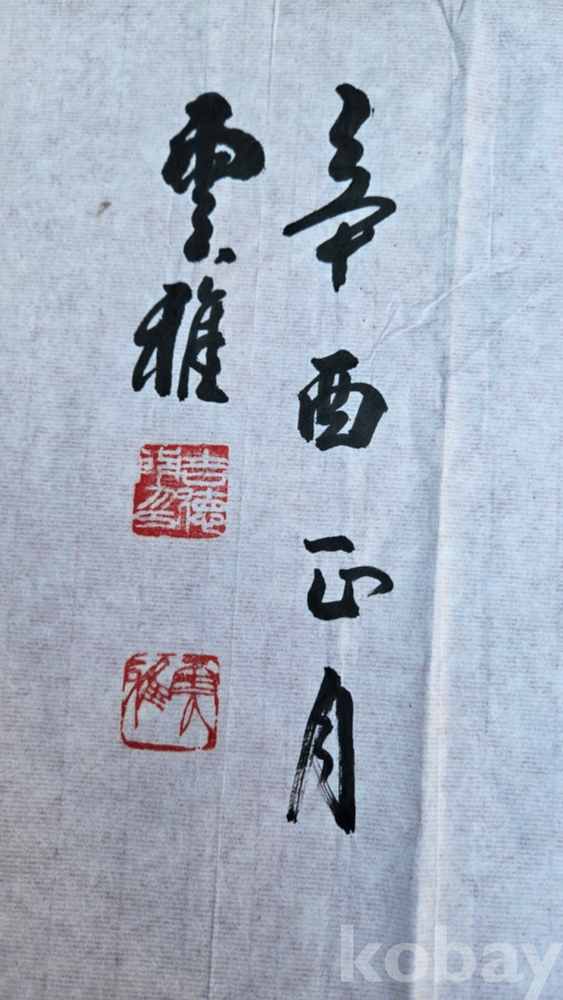 辛酉正月
雲雅
吉德
雲雅
kobay